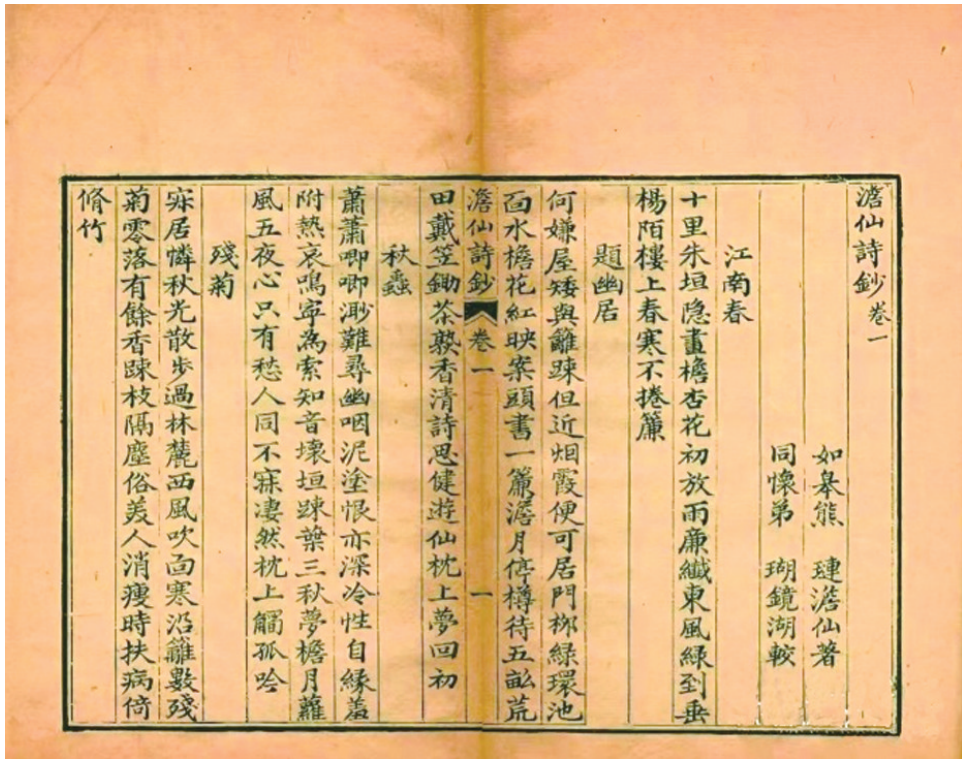 澹仙詩鈔卷一
如皋熊 璉澹仙著
同懷弟 瑚鏡湖較
江南春
十里朱垣隐畫檐杏花初放雨廉纖東風緑到垂
楊陌樓上春寒不捲簾
題幽居
何嫌屋矮與籬踈但近烟霞便可居門柳緑環池
面水檐花紅映案頭書一簾澹月停樽待五畝荒
澹仙詩鈔 卷一 一
田戴笠鋤茶熟香清詩思健遊仙枕上夢回初
秋蟲
蕭蕭唧唧渺難尋幽咽泥塗恨亦深冷性自緣羞
附熱哀鳴寧為索知音壞垣踈葉三秋夢檐月蘿
風五夜心只有愁人同不寐淒然枕上觸孤吟
殘菊
寂居憐秋光散步過林麓西風吹面寒沿籬數殘
菊零落有餘香踈枝隔塵俗美人消瘦時扶病倚
脩竹